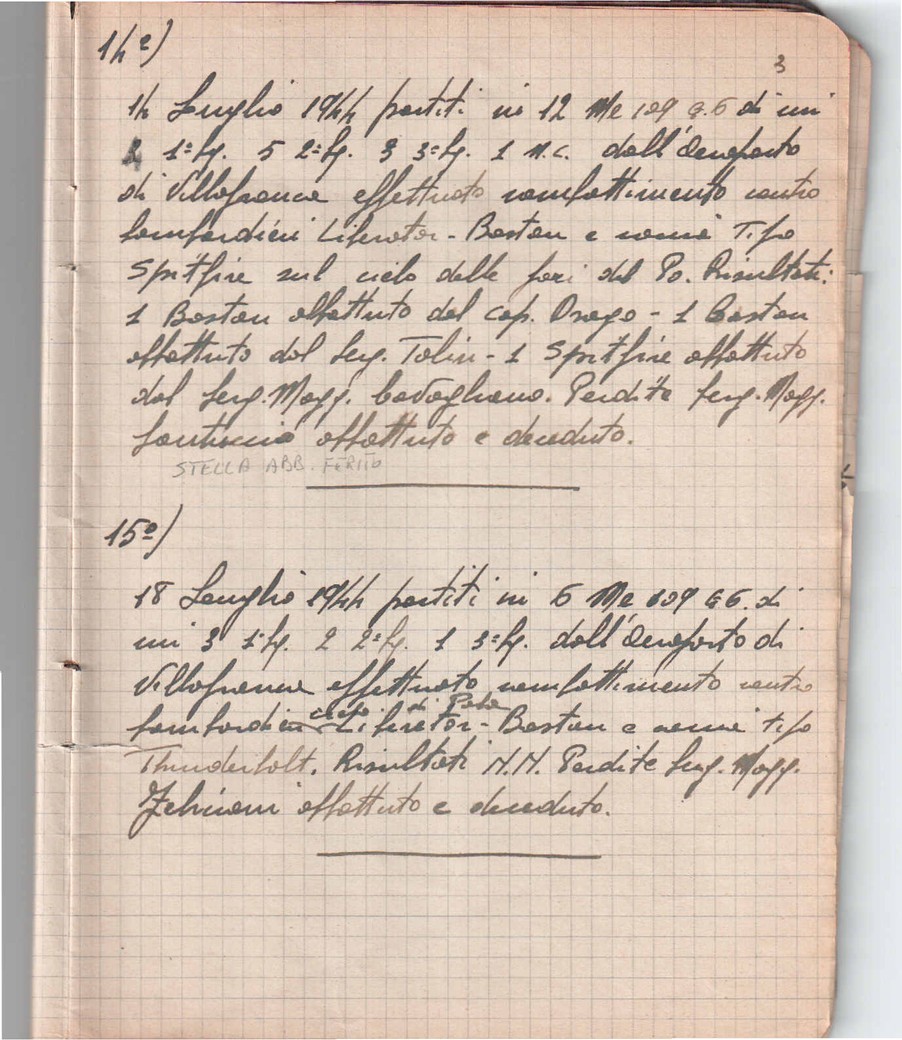 3
14º)
14 Luglio 1944 partiti in 12 Me 109 G.6 di cui
1ª Sq. 5 2ª Sq. 3 3ª Sq. 1 N.C. dall'Aeroporto
di Villafranca effettuato combattimento contro
bombardieri Liberator - Boston e caccia Tipo
Spitfire sul cielo delle foci del Po. Risultati:
1 Boston abbattuto dal Cap. Drago - 1 Boston
abbattuto dal Serg. Talin - 1 Spitfire abbattuto
dal Serg. Magg. Cavagliano. Perdite Serg. Magg.
abbattuto e deceduto.
STELLA ABB. FERITO
15º)
18 Luglio 1944 partiti in 6 Me 109 G6. di
cui 3 1ª Sq. 2 2ª Sq. 1 3ª Sq. dall'Aeroporto di
Villafranca effettuato combattimento contro
cielo di
bombardieri Liberator - Boston e caccia tipo
Thunderbolt. Risultati N.N. Perdite Serg. Magg.
abbattuto e deceduto.